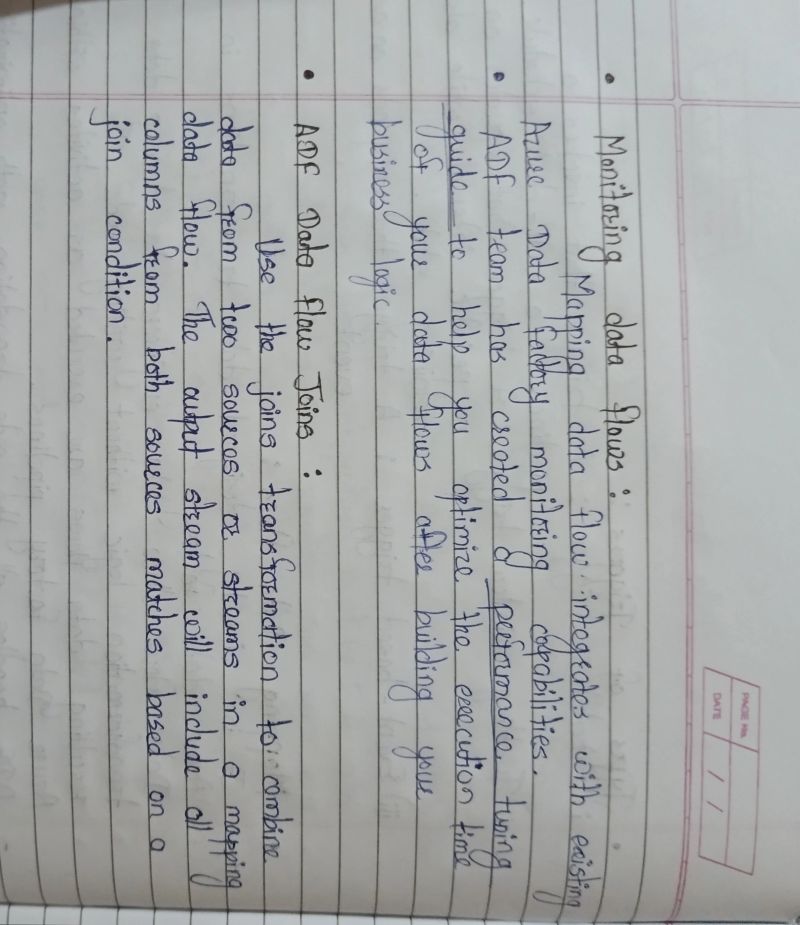 PAGE No.
DATE / /
• Monitoring data flows :
Mapping data flow integrates with existing
Azure Data factory monitoring capabilities.
• ADF team has created a performance tuning
guide to help you optimize the execution time
of your data flows after building your
business logic.
• ADF Data flow Joins :
Use the joins transformation to combine
data from two sources or streams in a mapping
data flow. The output stream will include all
columns from both sources matches based on a
join condition.